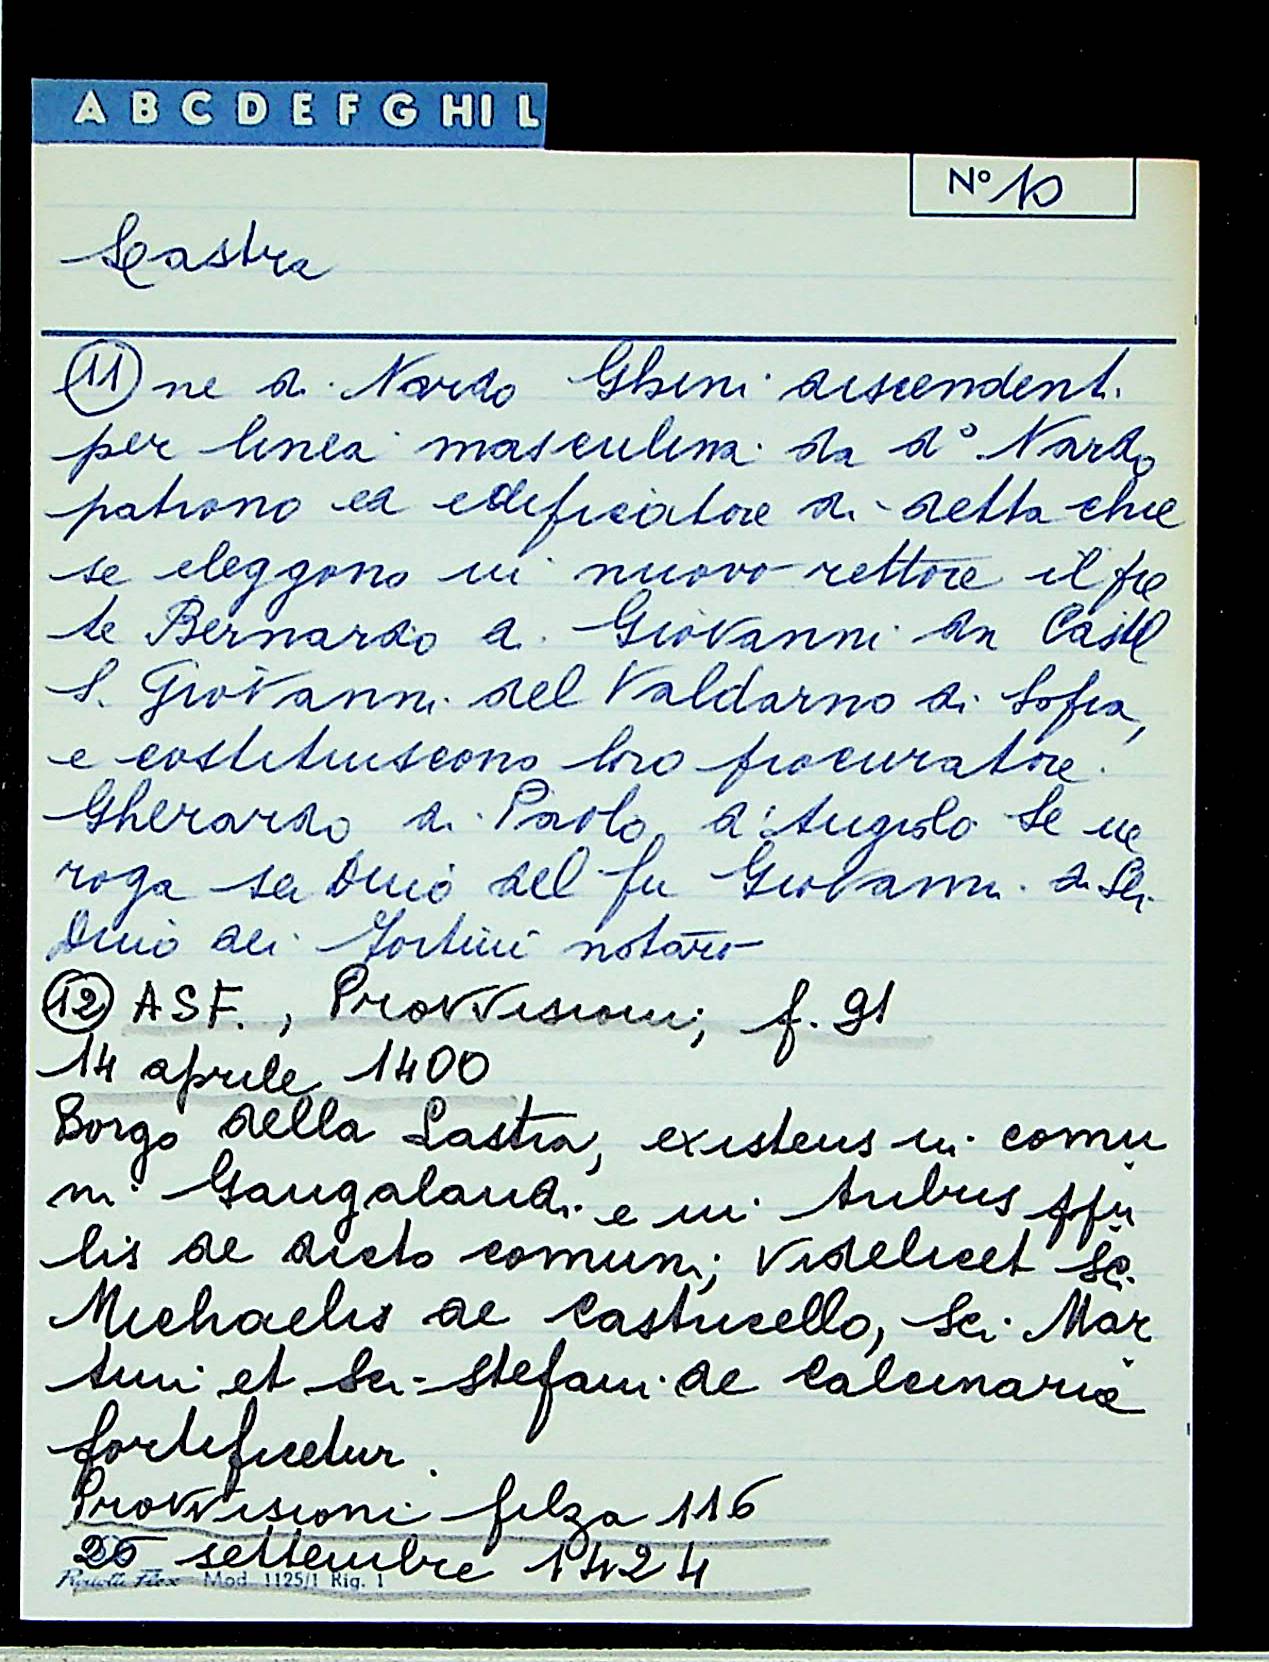 A B C D E F G H I L
N° 10
Lastra
11 ne di Nardo Ghini discendenti
per linea masculina da d° Nardo
patrono ed edificatore di detta chie
sa eleggono in nuovo rettore il fra
te Bernardo di Giovanni da Castel
S. Giovanni del Valdarno di Sofia,
e costituiscono loro procuratore
Gherardo di Paolo d'Angiolo Se ne
roga ser Duio del fu Giovanni di Ser
Duio dei notaro
12 ASF., Provvisioni, f. 91
14 aprile 1400
Borgo della Lastra, existens in comu
ni Gangalandi e in tribus ppu
lis de dicto comuni; videlicet Sci.
Michaelis de Castricello, Sci. Mar
tini et Sci. Stefani de Calcinaria
fortificetur.
Provvisioni filza 116
settembre 1424
Mod. 1125/1 Rig. 1